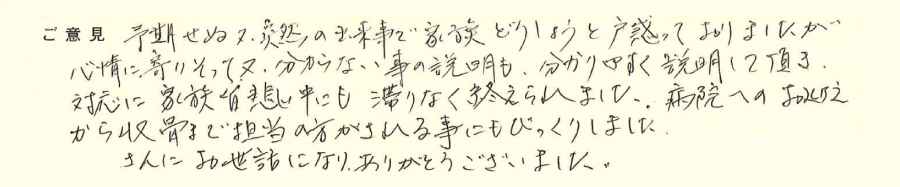 ご意見 予期せぬ又、突然の出来事で家族どうしようと戸惑っておりましたが
心情に寄りそって又、分からない事の説明も、分かりやすく説明して頂き、
対応に家族皆悲しい中にも滞りなく終えられました。病院へのお迎え
から収骨まで担当の方がされる事にもびっくりしました。
さんにお世話になり、ありがとうございました。